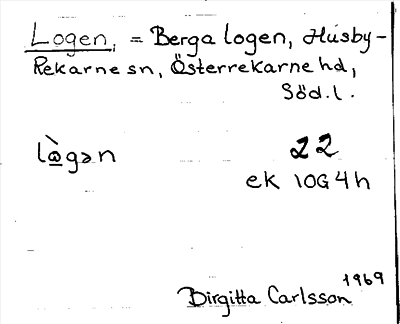 Logen, = Berga logen, Husby-
Rekarne sn, Österrekarne hd,
Söd. l.
lò̲gən 22
ek 10G 4h
Birgitta Carlsson 1969